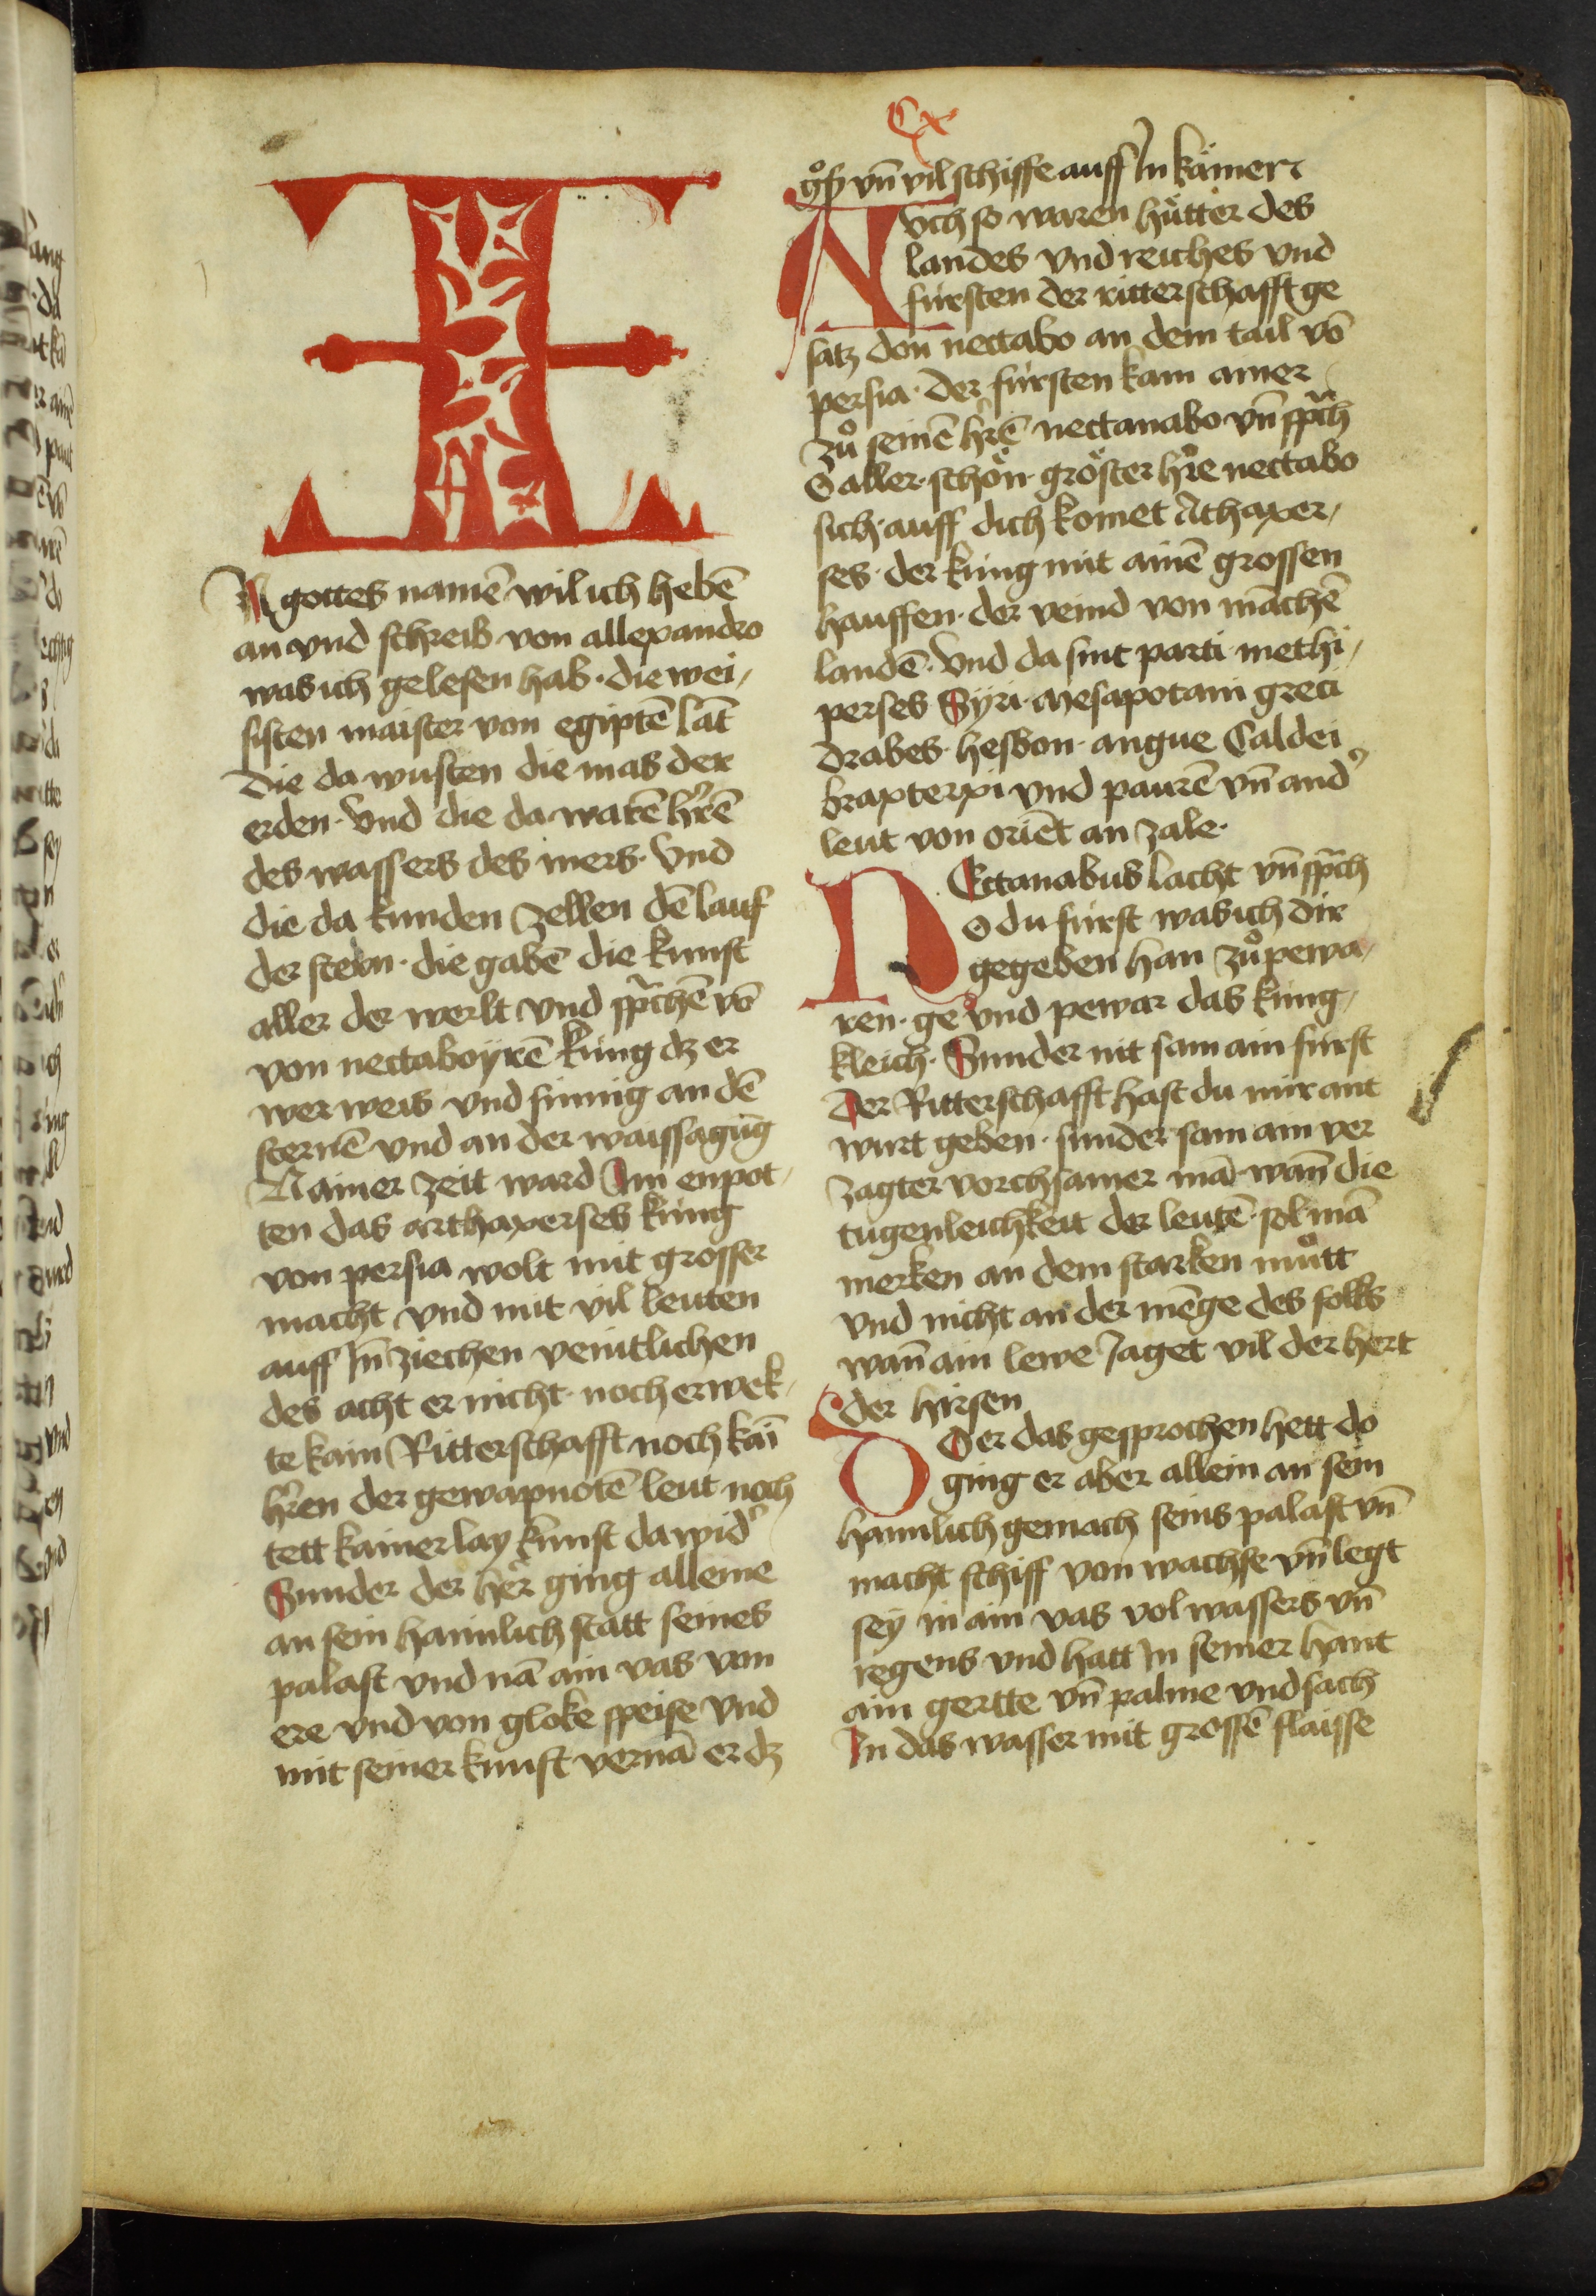 Cx
I
N gottes namē wil ich hebē
an vnd schreib von allexandro
was ich gelesen hab · die wei,
sisten maister von egiptē lāt
die da wusten die mas der
erden · Vnd die da warē hr̄ē
des wassers des mers · Vnd
die da kunden zellen dē lauf
der stern · die gabē die kunst
aller der werlt vnd spr̄chē vō
von nectabo yrē kúng dz er
wer weis vnd sinnig an dē
sternē vnd an der waissagūg
N ainer zeit ward Im enpot,
ten das arthaxerses kúng
von persia wolt mit grosser
macht vnd mit vil leuten
auff In̄ ziechen veintlichen
des acht er nicht · noch erwek,
te kain Ritterschafft noch kaī
hr̄en der gewapnotē leut noch
tett kainerlay kunst da wid'
Sunder der her ging alleine
an sein haimlich statt seines
palast vnd nā ain vas von
ere vnd von glokē speise vnd
mit seiner kunst vernā er dz
gͦs vn̄ vil schiffe auff In kämer
Avch so waren hütter des
landes vnd reiches vnd
fürsten der ritterschafft ge
satz don nectabo an dem tail vō
persia · der fürsten kam ainer
zů seinē hr̄ē nectanabo vn̄ spr̄ch
O aller · schön · gröster hr̄e nectabo
sich · auff dich komet Athaxer,
ses · der kúng mit ainē grossen
hauffen · der veind von māchē
landē · Vnd da sint parti · methi,
perses Syri · Mesapotami greci
drabes · hesbon · angue Caldei
braxterxi vnd paurē vn̄ and'
leut von oriēt an zale ·
NEctanabus lacht vn̄ spr̄ch
O du fürst was ich dir
gegeben han zů pewa,
ren · ge vnd pewar das kúng,
kleich · Sunder nit sam ain fürst
der Ritterschafft hast du mir ant
wurt geben · sunder sam am ver
zagter vorchsamer mā · wan̄ die
tugenleichkeit der leutē · sol mā
merken an dem starken můtt
vnd nicht an der mēge des folks
wan̄ ain lewe Jaget vil der hert
der hirsen
DOer das gesprochen hett do
ging er aber allein an sein
haimlich gemach seins palast vn̄
macht schiff von wachse vn̄ legt
sey in ain vas vol wassers vn̄
regens vnd hatt In seiner hant
ain gertte vn̄ palme vnd sach
In das wasser mit grossē flaisse